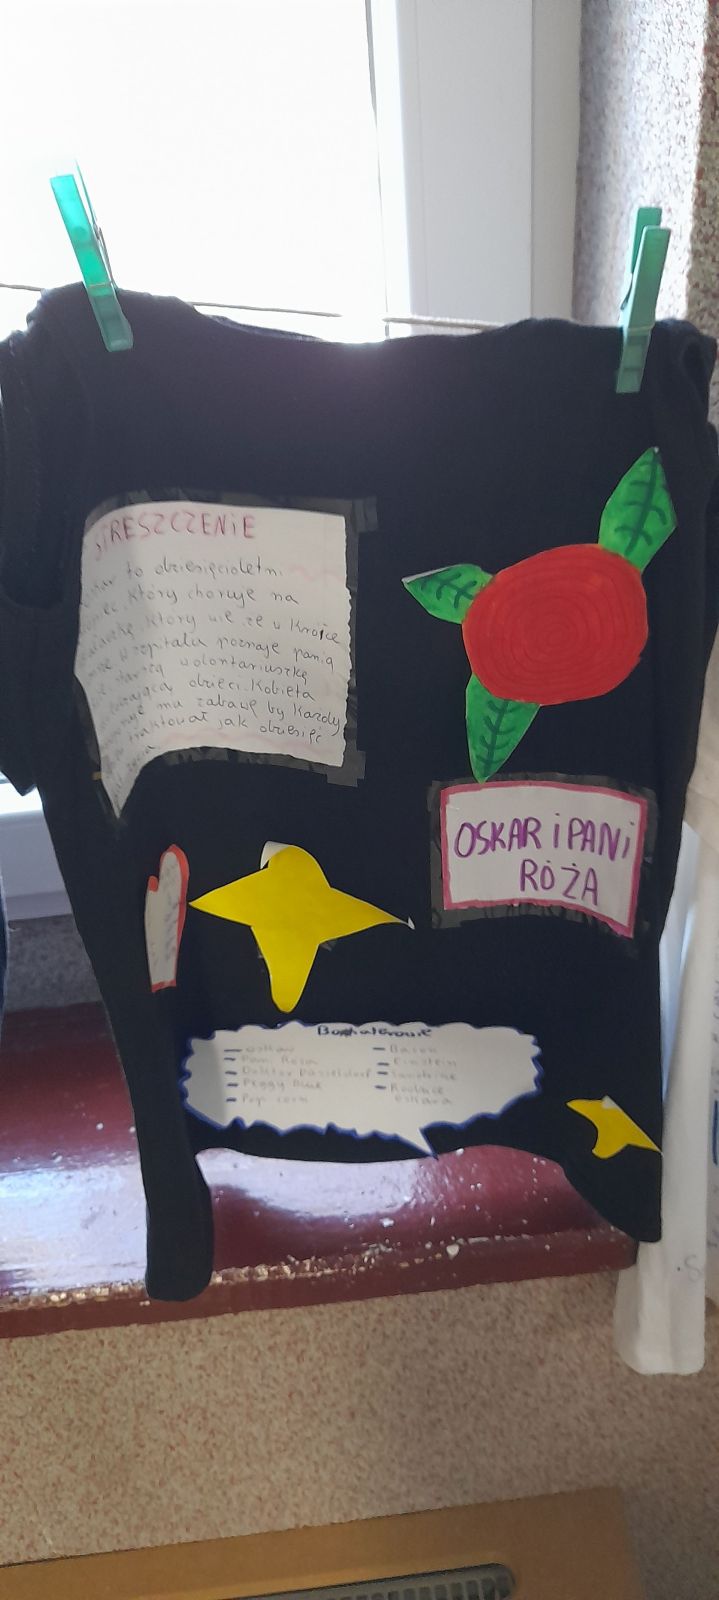 STRESZCZENIE
to dziesięcioletni
który choruje na
który wie że w krótce
w szpitalu poznaje panią
starszą wolontariuszkę
dzieci. Kobieta
mu zabawę by każdy
traktował jak dziesięć
OSKAR i PANI
RÓŻA
Bohaterowie
- Oskar
- Pani Róża
- Doktor Düsseldorf
- Peggy Blue
- Pop corn
- Bacon
- Einstein
- Sandrine
- Rodzice
Oskara